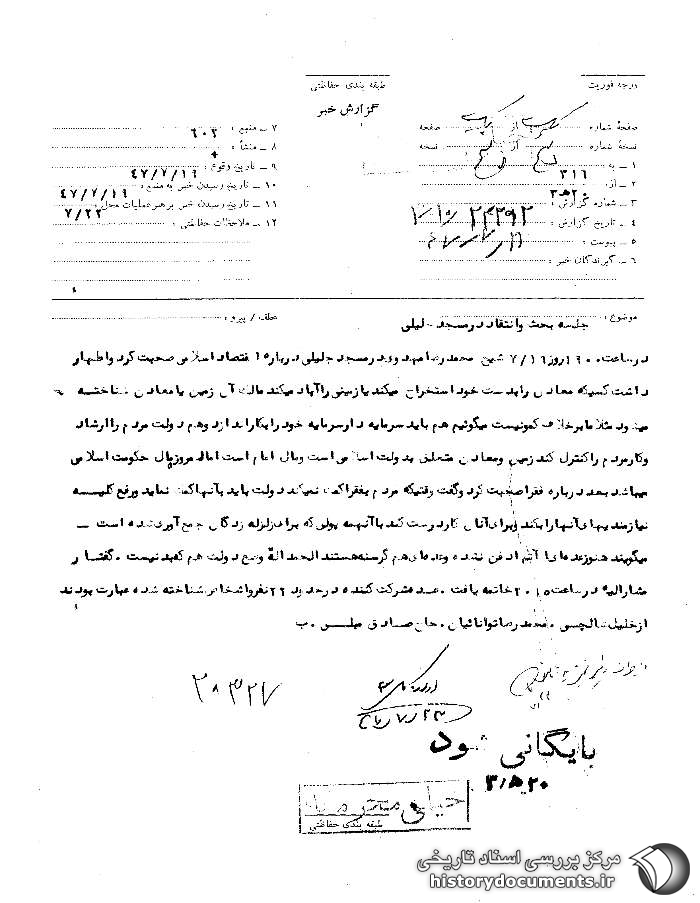 درجه فوریت
طبقه بندی حفاظتی
گزارش خبر
صفحهٔ شماره یک از یک صفحه
نسخهٔ شماره از نسخه
۱ ـ به ۳۱۶
۲ ـ از ۲۰هـ۳
۳ ـ شماره گزارش : ۲۴۲۹۲
۴ ـ تاریخ گزارش :
۵ ـ پیوست :
۶ ـ گیرندگان خبر :
۷ ـ منبع : ۶۰۲
۸ ـ منشأ :
۹ ـ تاریخ وقوع : ۴۷/۷/۱۶
۱۰ ـ تاریخ رسیدن خبر به منبع : ۴۷/۷/۱۶
۱۱ ـ تاریخ رسیدن خبر برهبر عملیات محل : ۷/۲۲
۱۲ ـ ملاحظات حفاظتی :
موضوع : جلسه بحث وانتقاد درمسجد جلیلی
عطف / پیرو :
درساعت ۱۹۰۰روز ۷/۱۶ شیخ محمدرضا مهدوی درمسجد جلیلی درباره اقتصاد اسلامی صحبت کرد واظهار
داشت کسیکه معادن رابدست خود استخراج میکند یازمینی راآباد میکند مالک آن زمین یامعادن شناخته
میشود مثلا مابرخلاف کمونیست میگوئیم هم باید سرمایه دارسرمایه خود رابکاراندازد وهم دولت مردم راارشاد
وکارمردم راکنترل کند زمین ومعادن متعلق بدولت اسلامی است ومال امام است امامروزمال حکومت اسلامی
میباشد بعد درباره فقراصحبت کرد وگفت وقتیکه مردم بفقراکمک نمیکند دولت باید بآنهاکمک نماید ورفع کلیه
نیازمندیهای آنهارابکند وبرای آنان کاردرست کند باآنهمه پولی که برای زلزله زدگان جمع آوری شده است ـ
میگویند هنوزعده ای ازآنها دفن نشده وعده ای هم گرسنه هستند الحمدالله وضع دولت هم که بد نیست . گفتار
مشارالیه درساعت ۲۰۱۵ خاتمه یافت . عده شرکت کننده درحدود ۲۲ نفرواشخاص شناخته شده عبارت بودند
ازخلیل تالچسی . محمدرضاتوانائیان . حاج صادق مجلسی . ب
۲۰۳۲۷
بایگانی شود
۲۰هـ۳
خیلی محرمانه
طبقه بندی حفاظتی
مرکز بررسی اسناد تاریخی
historydocuments.ir